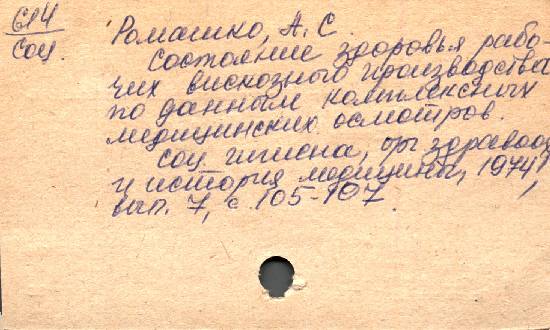 614
Соц.
Ромашко, А. С.
Состояние здоровья рабо-
чих вискозного производства
по данным комплексных
медицинских осмотров.
Соц. гигиена, орг. здравоох.
и история медицины, 1974,
вып. 7, с. 105-107.